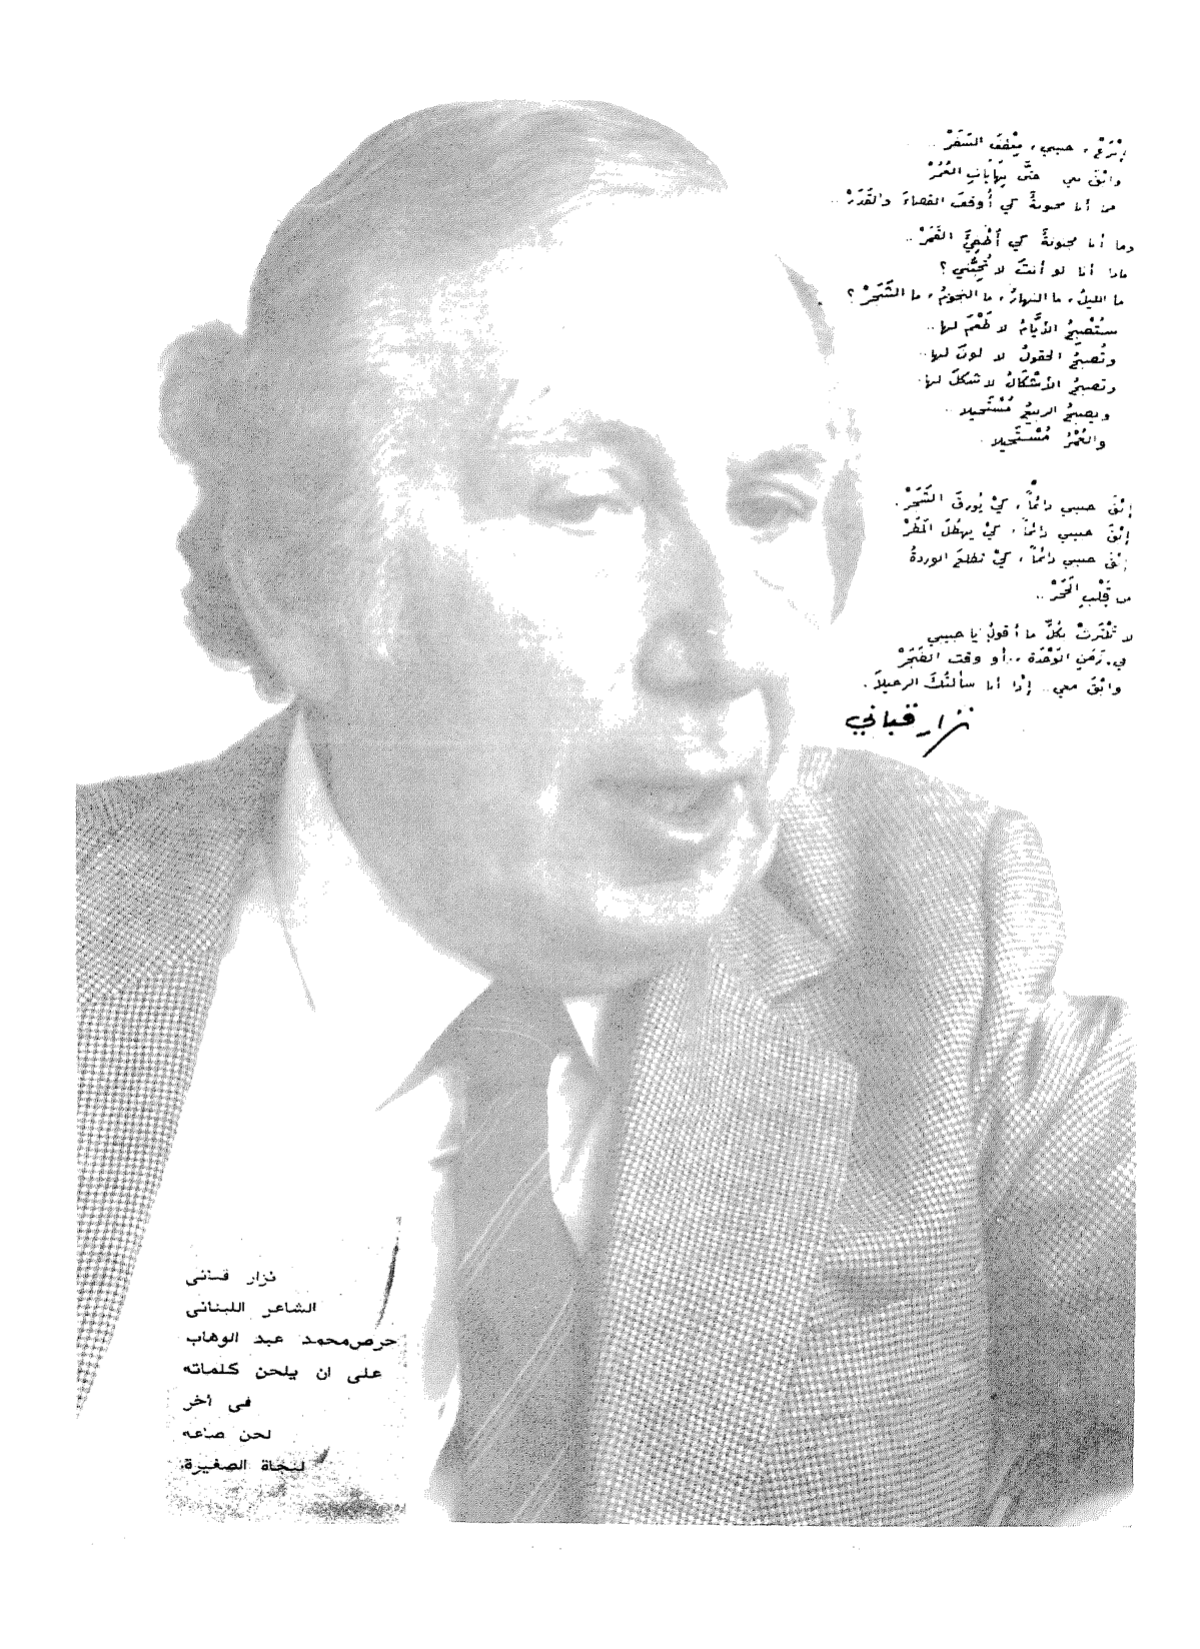 إنْزَعْ، حبيبي، مِعْطَفَ السَّفَرْ ..
وابْقَ معي حتَّى نِهَايَاتِ العُمُرْ
فما أنا مجنونةٌ كي أُوقفَ القضاءَ والقَدَرْ ..
وما أنا مجنونةٌ كي أُطْفِئَ القَمَرْ ..
ماذا أنا لو أنتَ لا تُحِبُّني ؟
ما الليلُ، ما النهارُ، ما النجومُ، ما الشَّجَرْ ؟
ستُصْبِحُ الأيَّامُ لا طَعْمَ لها ..
وتُصبحُ الحقولُ لا لونَ لها ..
وتصبحُ الأشْكَالُ لا شكلَ لها .
ويصبحُ الربيعُ مُسْتَحيلا ..
والعُمْرُ مُسْتَحيلا .
إبْقَ حبيبي دائماً، كيْ يُورقَ الشَّجَرْ .
إبْقَ حبيبي دائماً، كيْ يهطُلَ المَطَرْ
إبْقَ حبيبي دائماً، كيْ تطلعَ الوردةُ
من قَلْبِ الحَجَرْ ..
لا تَكْتَرِثْ بكُلِّ ما أقولُ يا حبيبي
في زَمَنِ الوَحْدَة .. أو وقت الضَجَرْ
وابْقَ معي .. إذا أنا سألتُكَ الرحيلاَ .
نزار قباني
نزار قبانى
الشاعر اللبنانى
حرص محمد عبد الوهاب
على ان يلحن كلماته
فى أخر
لحن صاغه
لنجاة الصغيرة.